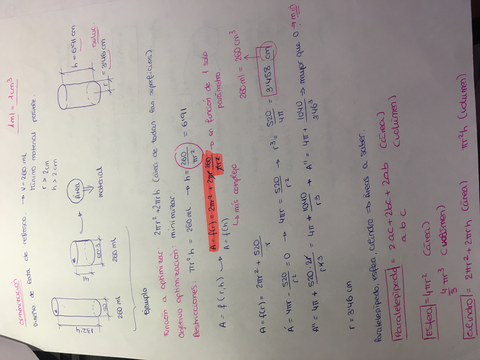 OPTIMIZACIÓN
1ml = 1cm³
Diseño de lata de refresco → V = 260 mL
Mínimo material posible.
r > 2cm
h > 2cm
260 ml
260 ml
Área
material
h = 6'91 cm
r = 3'46 cm
Ejemplo
Función a optimizar: 2πr² + 2πrh (área de todas las superficies)
Objetivo optimización: minimizar
Restricciones: πr²h = 260 mL → h = 260/πr² = 6'91
A = f(r,h)
A = f(r) = 2πr² + 2πr 260/πr² → en función de 1 solo parámetro
A = f(h) → más complejo
260 ml = 260 cm³
A = f(r) = 2πr² + 520/r
A' = 4πr - 520/r² = 0 → 4πr = 520/r² → r³ = 520/4π = 3'458 cm
A'' = 4π + 520·2r/r⁴ = 4π + 1040/r³ → A'' = 4π + 1040/3'46³ ⇒ mayor que 0 → mín
r = 3'46 cm
Paralelepípedo, esfera, cilindro ⇒ áreas a saber.
Paralelepípedo = 2ac + 2bc + 2ab (área)
a b c (volumen)
Esfera = 4πr² (área)
4/3 πr³ (volumen)
Cilindro = 2πr² + 2πrh (área) πr²h (volumen)